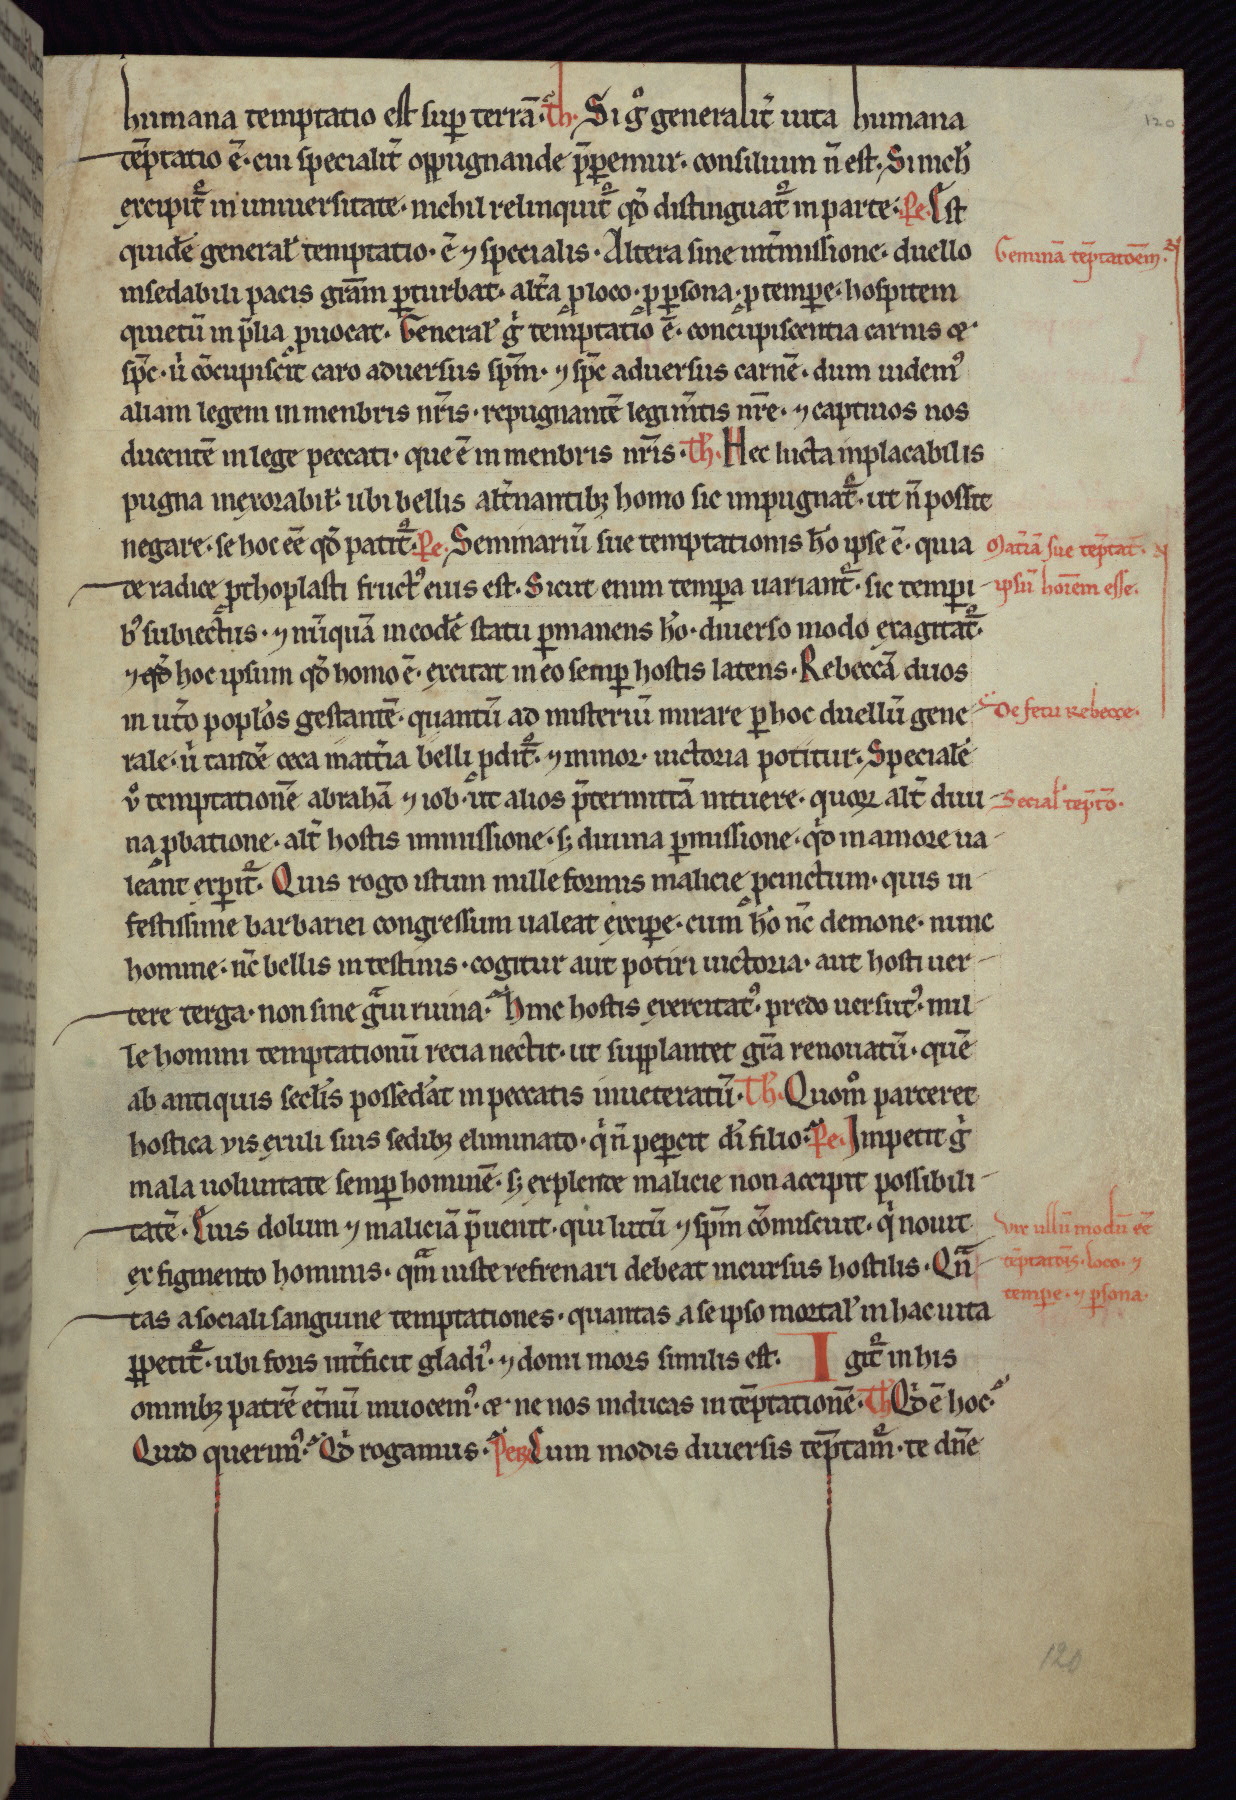 humana temptatio est sup̱ terrā. Th. Si gͦ generalit̄ uita humana
tēptatio ē. cui specialit̄ oppugnande p̄pemur. consilium n̄ est. Si nich̄
excipit̄ in uniuersitate. nichil relinquit̄ qd̄ distinguat̄ in parte. Pe. Est
quidē general̄ temptatio. ē ⁊ specialis. Altera sine int̄missione. duello
Geminā tēptatoēm.
insedabili pacis gr̄am ꝑturbat. alt̄a ꝓ loco. ꝓ ꝑsona. ꝓ tempe. hospitem
quietū in p̄lia ꝓuocat. General̄ gͥ temptatio ē. concupiscentia carnis ⁊
sp̄c. uͥ cōcupiscit caro aduersus sp̄m. ⁊ sp̄c aduersus carnē. dum uidemꝰ
aliam legem in menbris nr̄is. repugnantē legi m̄tis nr̄e. ⁊ captiuos nos
ducentē in lege peccati. que ē in menbris nr̄is. Th. Hec lucta inplacabilis
pugna inexorabil̄. ubi bellis alt̄nantibꝫ homo sic impugnat̄. ut n̄ possit
negare. se hoc eē qd̄ patit̄. Pe. Seminariū sue temptationis hō ipse ē. quia
Mat̄iā sue tēptat̄.
de radice ꝓthoplasti fructꝰ eius est. Sicut enim tempa uariant̄. sic tempi
ipsū hoīem esse.
bꝰ subiectus. ⁊ nūquā in eodē statu ꝑmanens hō. diuerso modo exagitat̄.
⁊ qd̄ hoc ipsum qd̄ homo ē. excitat in eo semꝑ hostis latens. Rebeccā duos
in ut̄o poplōs gestantē. quantū ad misteriū mirare ꝑ hoc duellū gene
De fetu Rebecce.
rale. uͥ tandē ceca mat̄ia belli ꝓdit̄. ⁊ minor uictoria potitur. Specialē
uͦ temptationē abrahā ⁊ iob. ut alios p̄termittā intuere. quoꝝ alt̄ diui
Secial̄ tēptō.
na ꝓbatione. alt̄ hostis inmissione. sꝫ diuina ꝑmissione. qͥd in amore ua
leant expit̄. Quis rogo istum mille formis malicie ꝑcinctum. quis in
festissime barbariei congressum ualeat excipe. cum hō nc̄ demone. nunc
homine. nc̄ bellis intestinis. cogitur aut potiri uictoria. aut hosti uer
tere terga. non sine gͣui ruina. Hinc hostis exercitatꝰ. predo uersutꝰ. mil
le homini temptationū recia nectit. ut supplantet gr̄a renouatū. quē
ab antiquis secl̄is possed̄at in peccatis inueteratū. Th. Quomͦ parceret
hostica uis exuli suis sedibꝫ eliminato. qͥ n̄ pepcit di filio. Pe. Impetit gͥ
mala uoluntate semꝑ hominē. sꝫ explende malicie non accipit possibili
tatē. Cuius dolum ⁊ maliciā p̄uenit. qui lutū ⁊ sp̄m cōmiscuit. qͥ nouit
Vix ullū modū eē
ex figmento hominis. qͣm iuste refrenari debeat incursus hostilis. Qn̄
tēptatōis. loco. ⁊
tas a sociali sanguine temptationes. quantas a se ipso mortal̄ in hac uita
tempe. ⁊ ꝑsona.
ꝑpetit̄. ubi foris int̄ficit gladiꝰ. ⁊ domi mors similis est. Igit̄ in his
omnibꝫ patrē et̄nū inuocemꝰ. ⁊ ne nos inducas in tēptationē. Th. Qͥd ē hoc.
Quid querimꝰ. Qͥd rogamus. Pet. Cum modis diuersis tēptam̄. te dn̄e
120
120